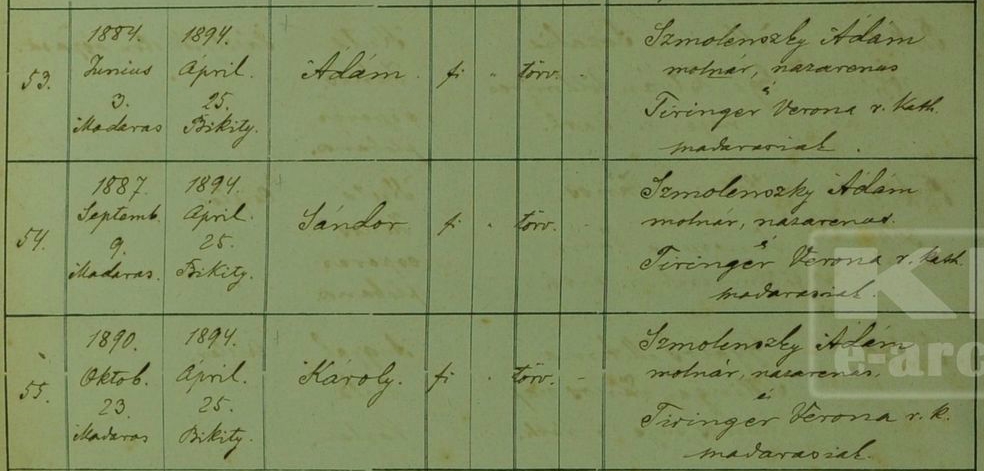 53.
1884.
Junius
3.
Madaras
1894.
April.
25.
Bikity.
Ádám.
fi
"
törv.
Szmolenszky Ádám
molnár, nazarenus
s
Tiringer Verona r. kath.
madarasiak.
54.
1887.
Septemb.
9.
Madaras.
1894.
April.
25.
Bikity.
Sándor
fi
"
törv.
Szmolenszky Ádám
molnár, nazarenus.
s
Tiringer Verona r. kath.
madarasiak.
55.
1890.
Oktob.
23.
Madaras
1894.
April.
25.
Bikity.
Károly.
fi
"
törv.
-
Szmolenszky Ádám
molnár, nazarenus.
s
Tiringer Verona r. k.
madarasiak.
e-arc